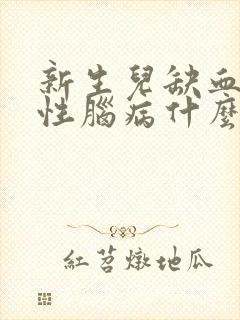 新生兒缺血
性腦病什麼
紅苕燉地瓜